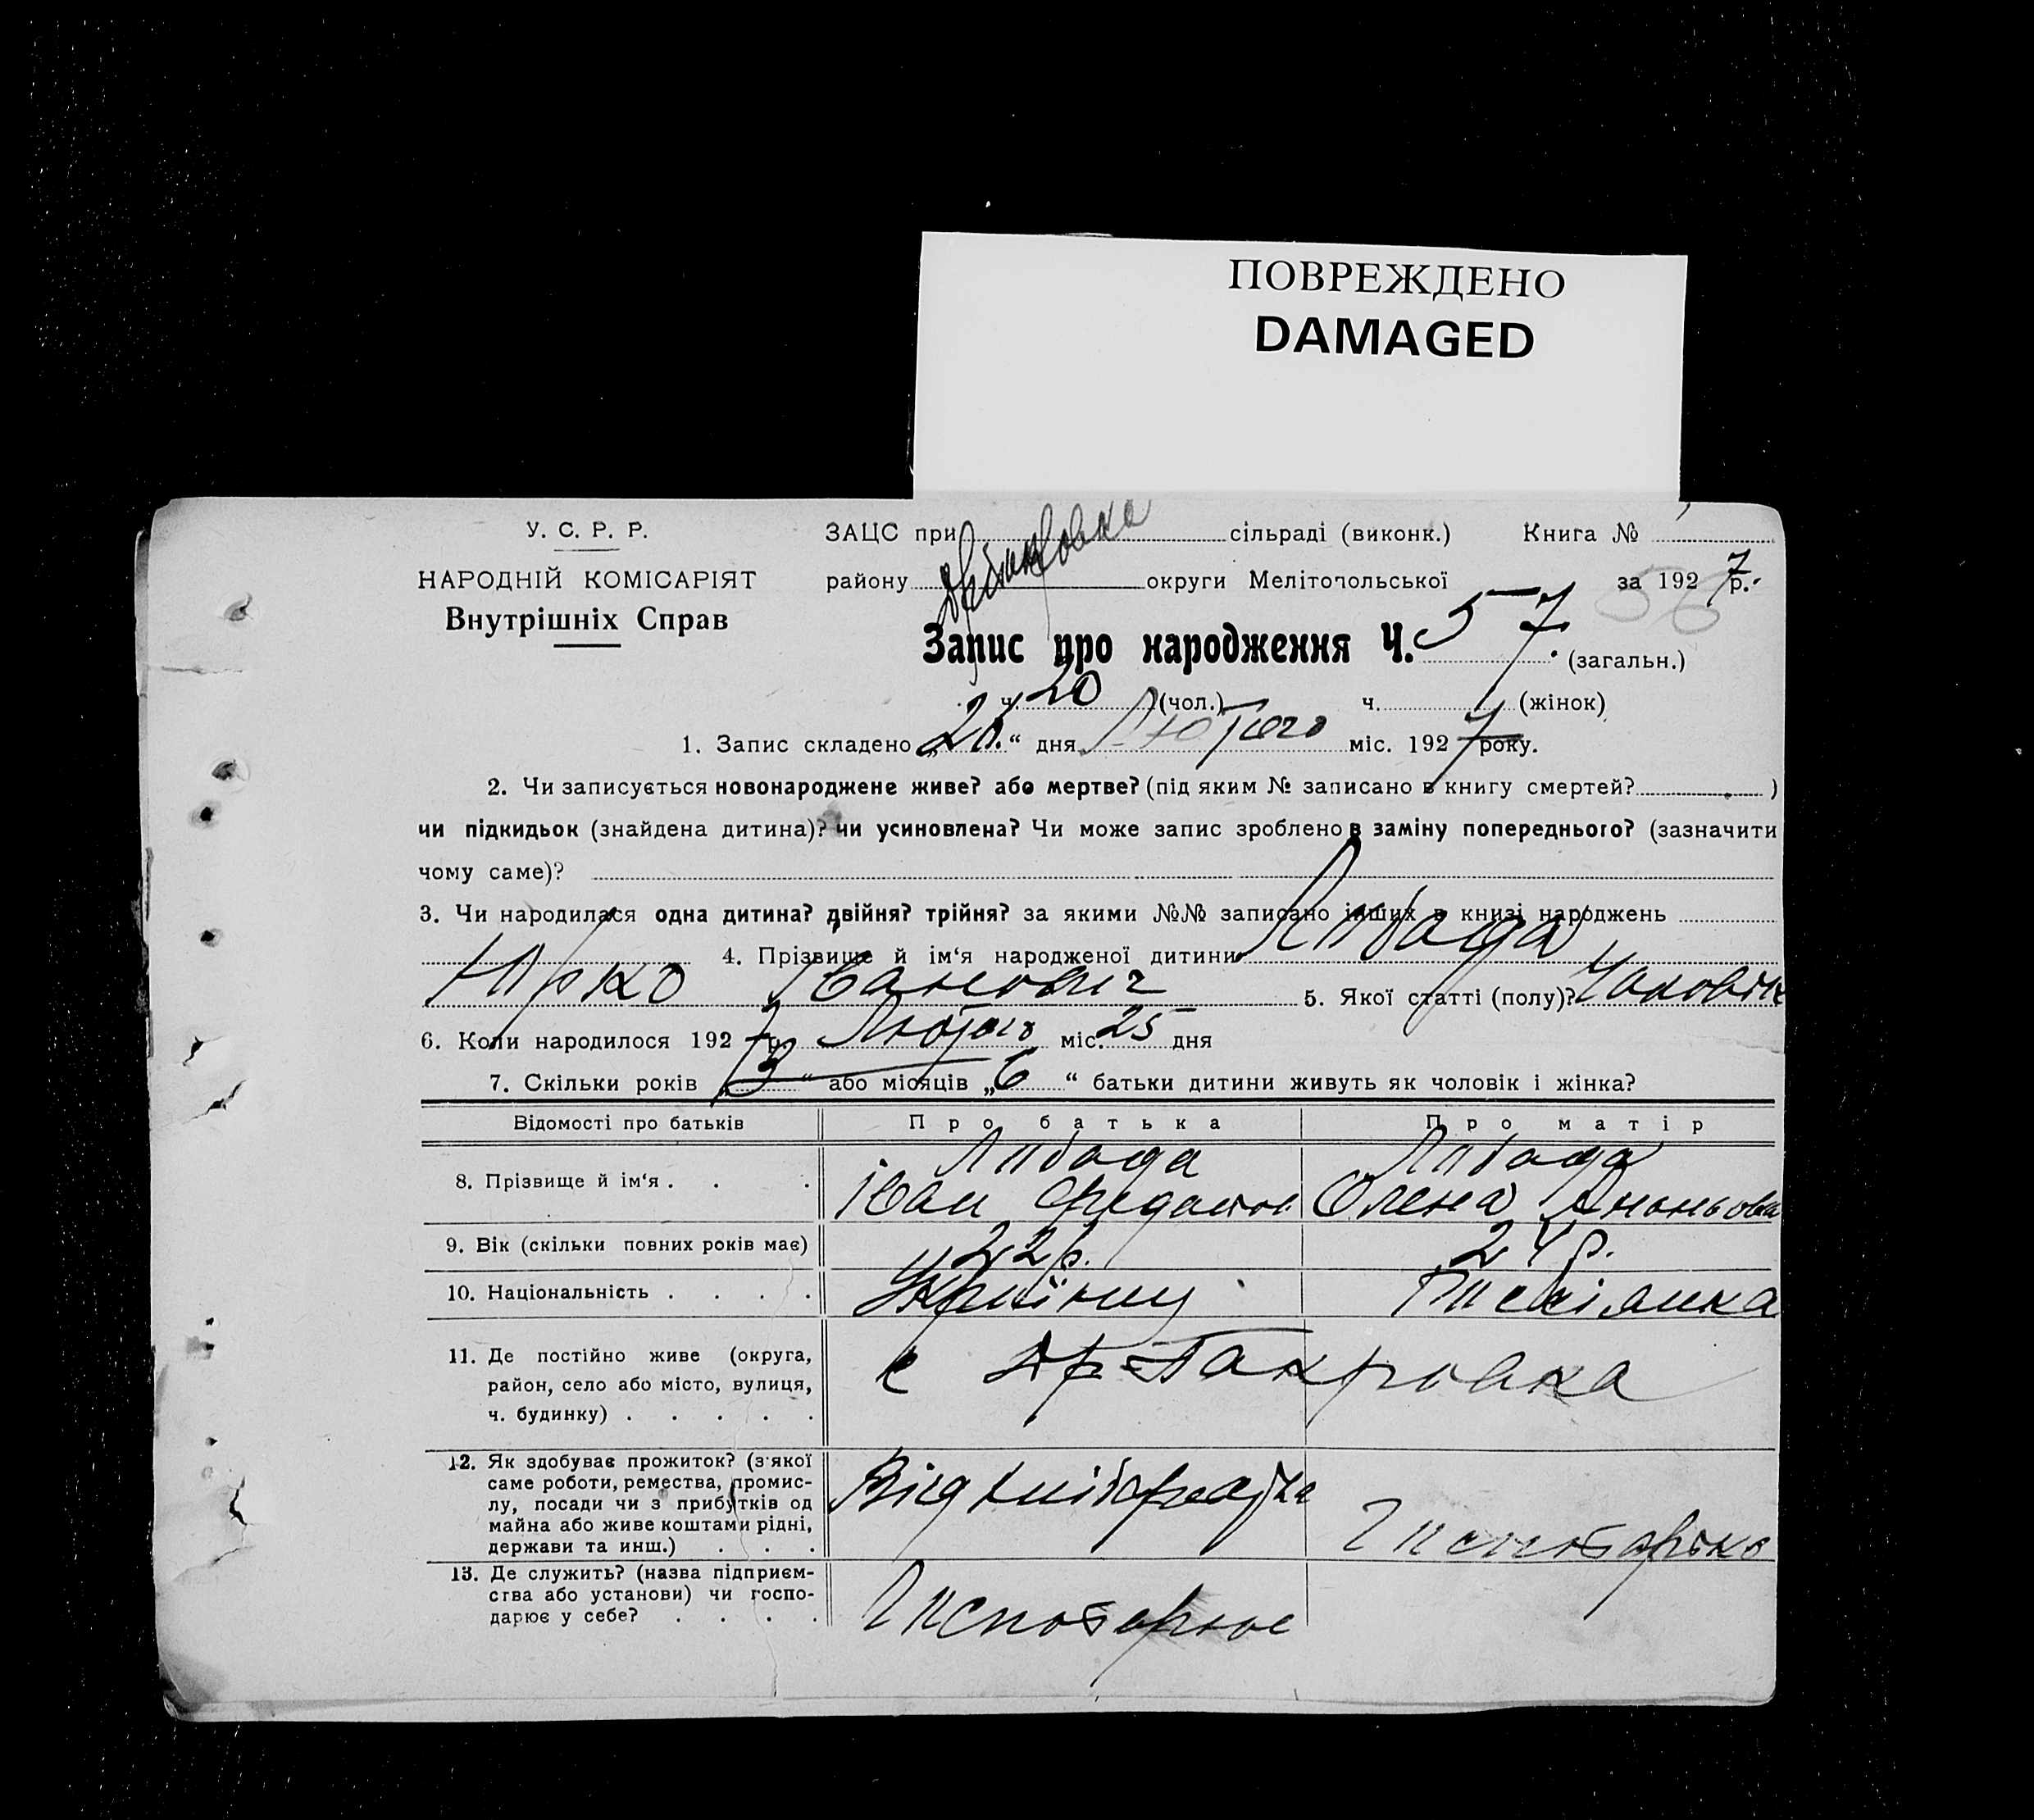 ПОВРЕЖДЕНО
DAMAGED
У. С. Р. Р.
НАРОДНІЙ КОМІСАРІЯТ
Внутрішніх Справ
ЗАЦС при сільраді (виконк.) Книга №
району округи Мелітопольської за 1927 р.
Запис про народження Ч. 57. (загальн.)
ч. 20 (чол.) ч. (жінок)
1. Запис складено „ “ дня Лютого міс. 1927 року.
2. Чи записується новонароджене живе? або мертве? (під яким № записано в книгу смертей? )
чи підкидьок (знайдена дитина)? чи усиновлена? Чи може запис зроблено в заміну попереднього? (зазначити
чому саме)?
3. Чи народилася одна дитина? двійня? трійня? за якими №№ записано інших в книзі народжень
4. Прізвище й ім'я народженої дитини
Юрко Іванович 5. Якої статті (полу)? Чоловік
6. Коли народилося 1927 р. Лютого міс. 25 дня
7. Скільки років „3“ або місяців „6“ батьки дитини живуть як чоловік і жінка?
Відомості про батьків Про батька Про матір
8. Прізвище й ім'я . . .
Іван Олена
9. Вік (скільки повних років має) 22 р. 24 р.
10. Національність . . . .
11. Де постійно живе (округа,
район, село або місто, вулиця,
ч. будинку) . . . . .
12. Як здобуває прожиток? (з якої
саме роботи, ремества, промис-
лу, посади чи з прибутків од
майна або живе коштами рідні,
держави та инш.) . . .
Від хліборобства
13. Де служить? (назва підприєм-
ства або установи) чи госпо-
дарює у себе? . . . .